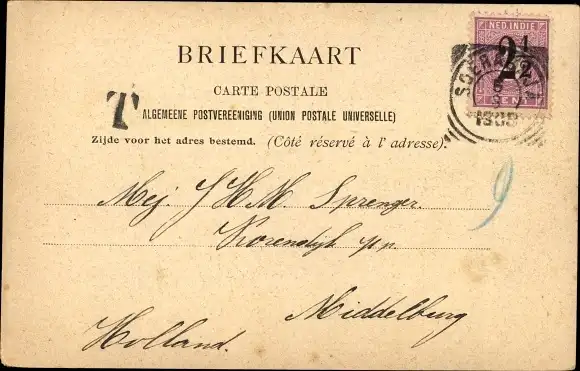 BRIEFKAART
CARTE POSTALE
T
ALGEMEENE POSTVEREENIGING (UNION POSTALE UNIVERSELLE)
Zijde voor het adres bestemd. (Côté réservé à l'adresse).
NED. INDIE
2 1/2
CENT
SOERABAJA
Mej. J H. M. Sprenger.
Korendijk
Middelburg
Holland.
9